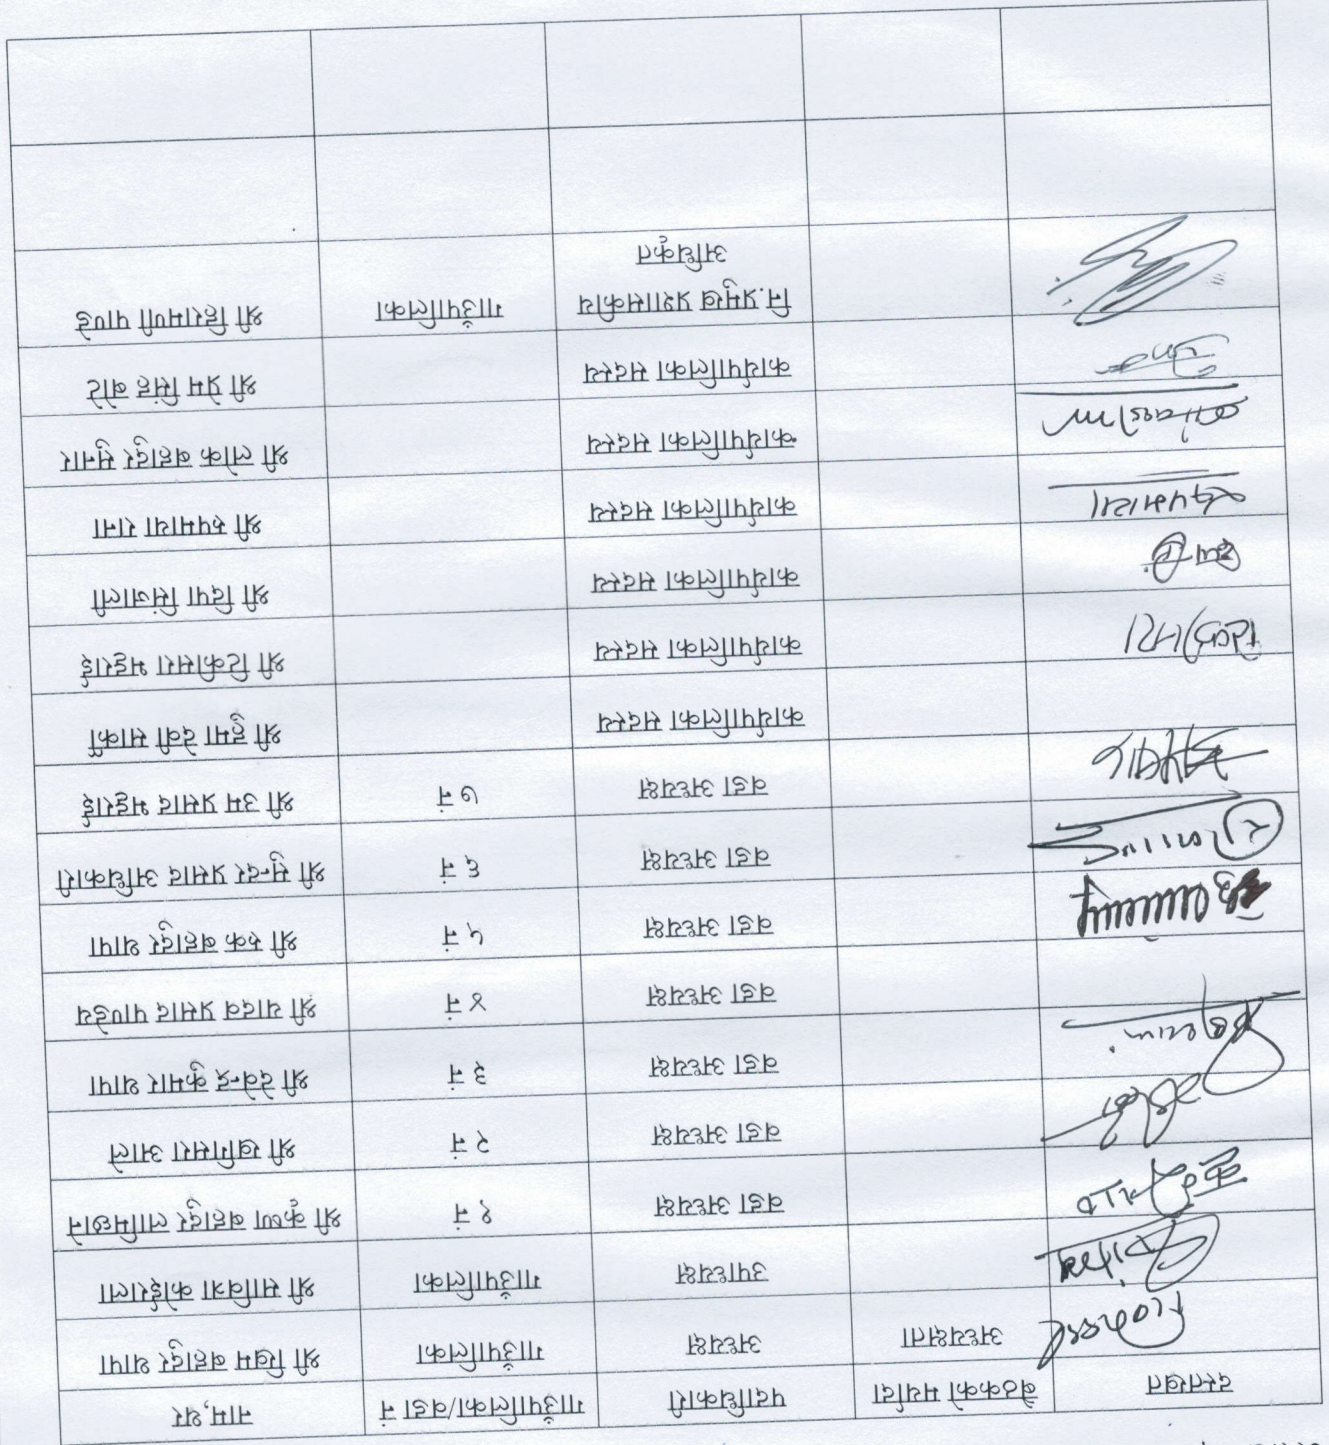 नाम,थर गाउँपालिका/वडा नं पदाधिकारी बैठकको मर्यादा दस्तखत
श्री खिम बहादुर थापा गाउँपालिका अध्यक्ष अध्यक्षता
श्री सावित्रा कोईराला गाउँपालिका उपाध्यक्ष
श्री कृष्ण बहादुर लामिछाने १ नं वडा अध्यक्ष
श्री खगिसरा आले २ नं वडा अध्यक्ष
श्री देवेन्द्र कुमार थापा ३ नं वडा अध्यक्ष
श्री यादव प्रसाद पाण्डेय ४ नं वडा अध्यक्ष
श्री रुक बहादुर थापा ५ नं वडा अध्यक्ष
श्री सुन्दर प्रसाद अधिकारी ६ नं वडा अध्यक्ष
श्री उम प्रसाद भट्टराई ७ नं वडा अध्यक्ष
श्री हुमा देवी सार्की कार्यपालिका सदस्य
श्री टिकीसरा भट्टराई कार्यपालिका सदस्य
श्री दिपा सिंजाली कार्यपालिका सदस्य
श्री रुपमाया राना कार्यपालिका सदस्य रुपमाया
श्री लोक बहादुर सुनार कार्यपालिका सदस्य
श्री प्रेम सिंह बोटे कार्यपालिका सदस्य
श्री हिरामणी पाण्डे गाउँपालिका नि.प्रमुख प्रशासकीय
अधिकृत